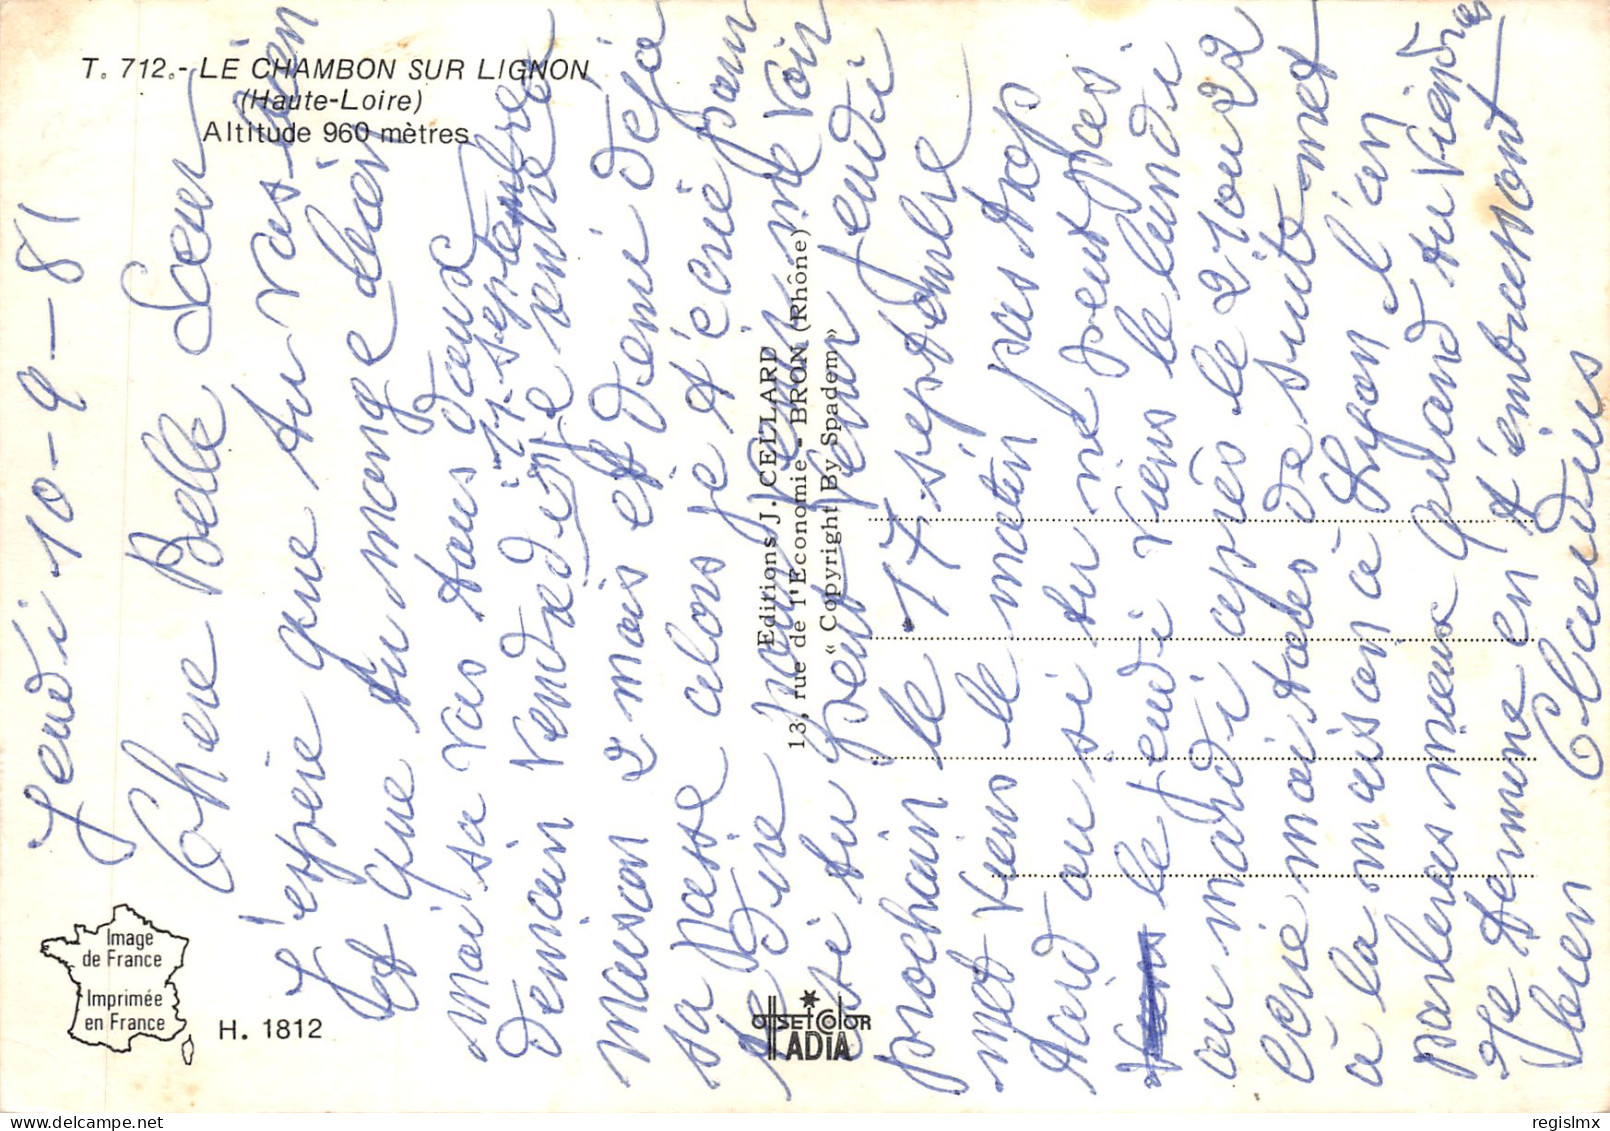 T. 712.- LE CHAMBON SUR LIGNON
(Haute-Loire)
Altitude 960 mètres
Jeudi 10-9-81
Chere Belle Soeur
J'espère que tu vas bien
Et que tu mange bien
moi sa vas tous doux
demain vendredi 11 septembre
je rentre a la
maison 2 mois et demi déjà
sa passe alors je t'écrie pour
te dire pour venir me voir
si tu peut venir jeudi
prochain le 17 septembre
met viens le matin pas trop
tard ou si tu ne peut pas
le jeudi viens le lundi
ou mardi après le 21 ou 22
écrie moi tous de suite met
à la maison à Lyon l'an
parleras mieux quand tu viendras
Je termine en t'embrassant
bien Claudius
Editions J. CELLARD
13, rue de l'Economie - BRON (Rhône)
« Copyright By Spadem »
Image
de France
Imprimée
en France
H. 1812
OFFSET COLOR
ADIA
delcampe.net
regislmx